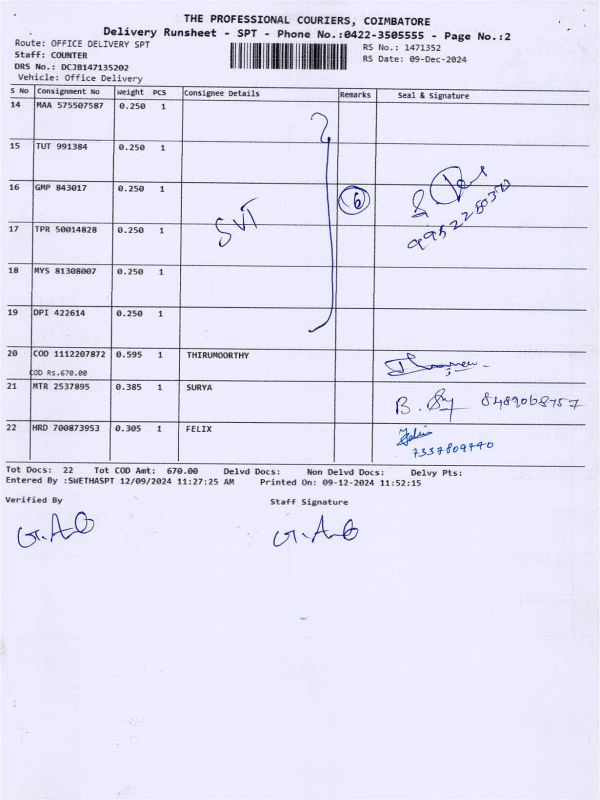 THE PROFESSIONAL COURIERS, COIMBATORE
Delivery Runsheet - SPT - Phone No.:0422-3505555 - Page No.:2
Route: OFFICE DELIVERY SPT
RS No.: 1471352
Staff: COUNTER
RS Date: 09-Dec-2024
DRS No.: DC3B147135202
Vehicle: Office Delivery
S No Consignment No Weight PCS Consignee Details Remarks Seal & Signature
14 MAA 575507587 0.250 1
15 TUT 991384 0.250 1
16 GMP 843017 0.250 1
6
SVT
17 TPR 50014828 0.250 1
18 MYS 81308007 0.250 1
19 DPI 422614 0.250 1
20 COD 1112207872 0.595 1 THIRUMOORTHY
COD Rs.670.00
21 MTR 2537895 0.385 1 SURYA
B. 8489068757
22 HRD 700873953 0.305 1 FELIX
Felix
7337809740
Tot Docs: 22 Tot COD Amt: 670.00 Delvd Docs: Non Delvd Docs: Delvy Pts:
Entered By :SWETHASPT 12/09/2024 11:27:25 AM Printed On: 09-12-2024 11:52:15
Verified By Staff Signature